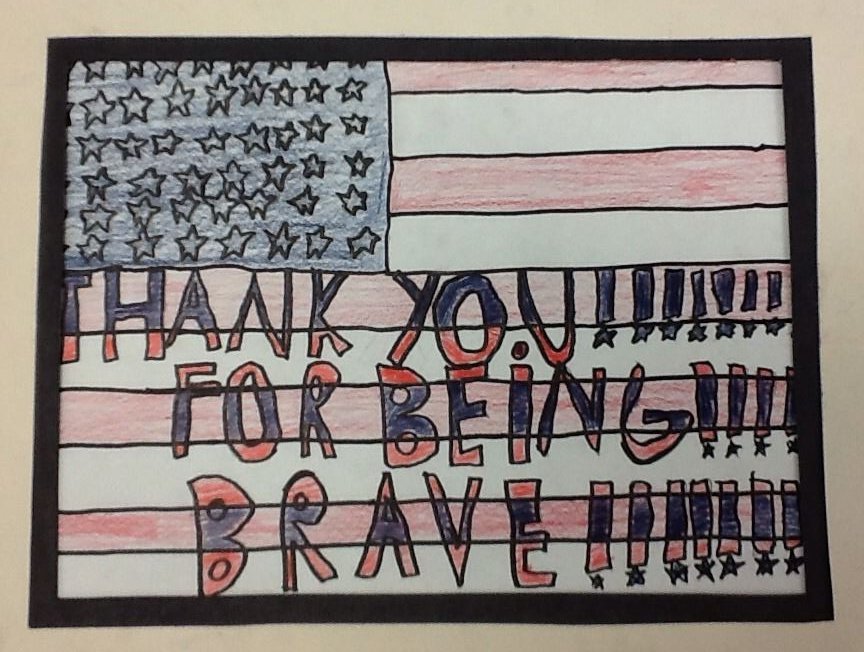 THANK YOU!!!!!!!
FOR BEiNG!!!!
BRAVE!!!!!!!